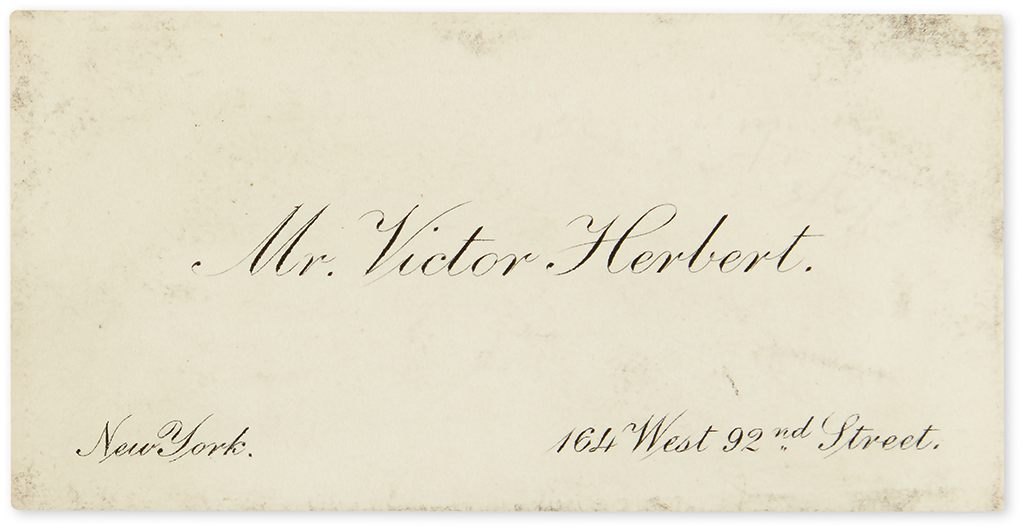 Mr. Victor Herbert.
New York.
164 West 92nd Street.